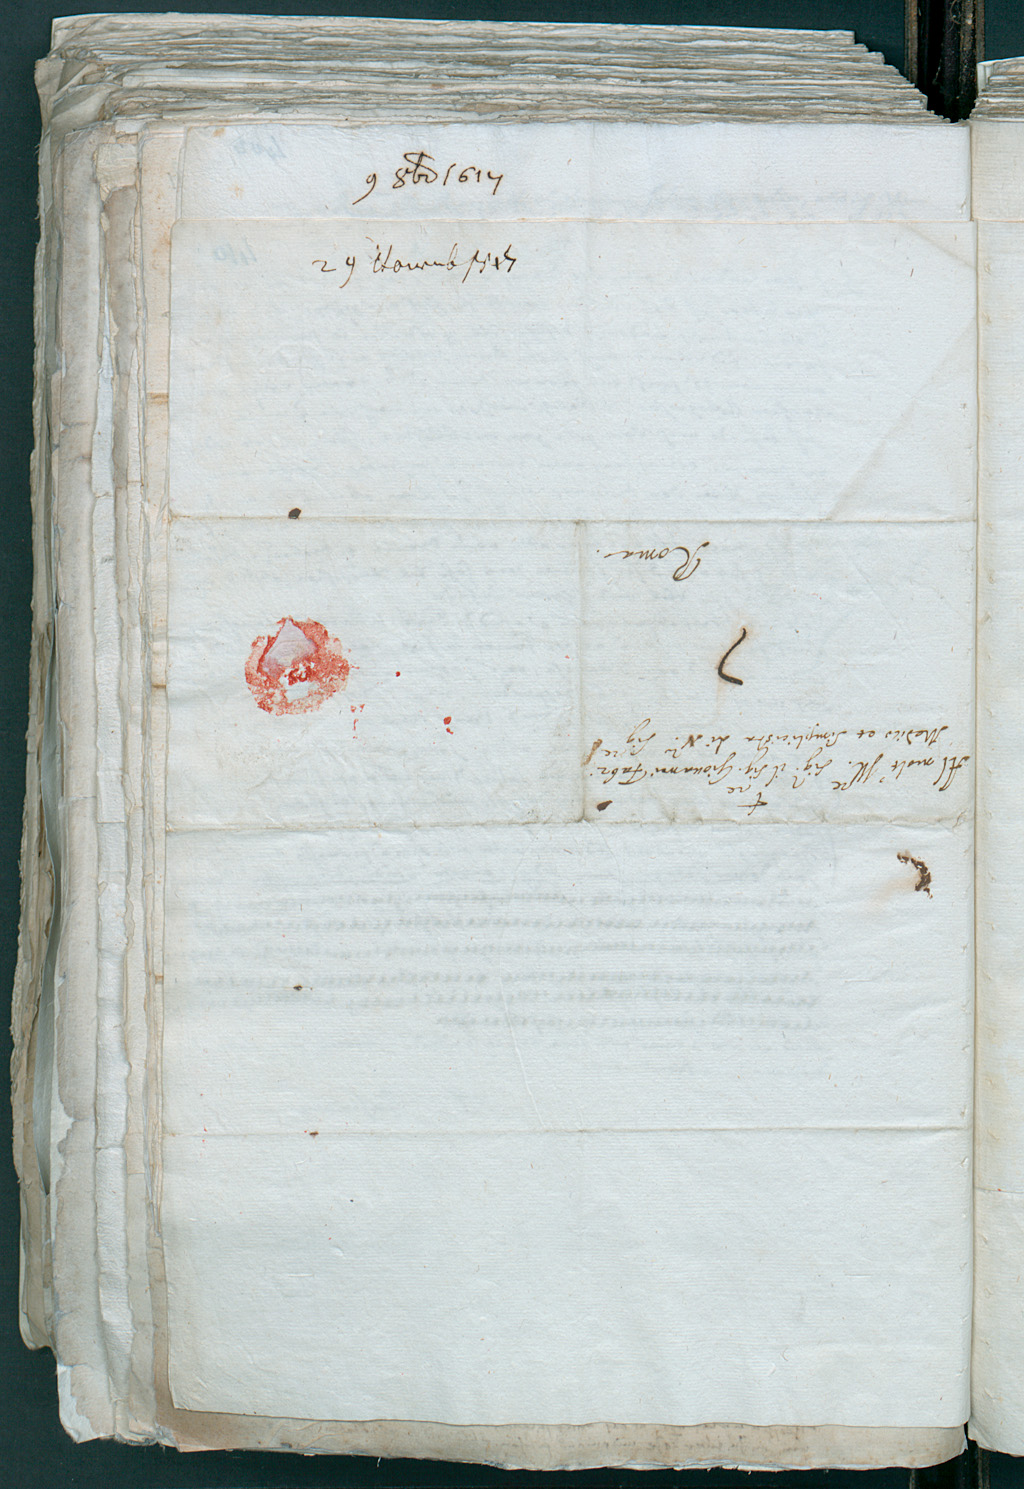 9 8bre 1617
29 Novemb 1617
Al molt Ill.re Sig.r il Sig. Giovanni Fabri
Medico et Simplicista di N. Sig.re
Roma.